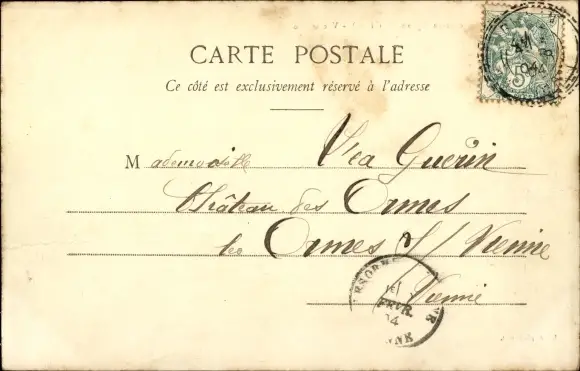 CARTE POSTALE
Ce côté est exclusivement réservé à l'adresse
Mademoiselle Léa Guérin
Château des Ormes
les Ormes s/ Vienne
Vienne
5
04
FEVR.
04